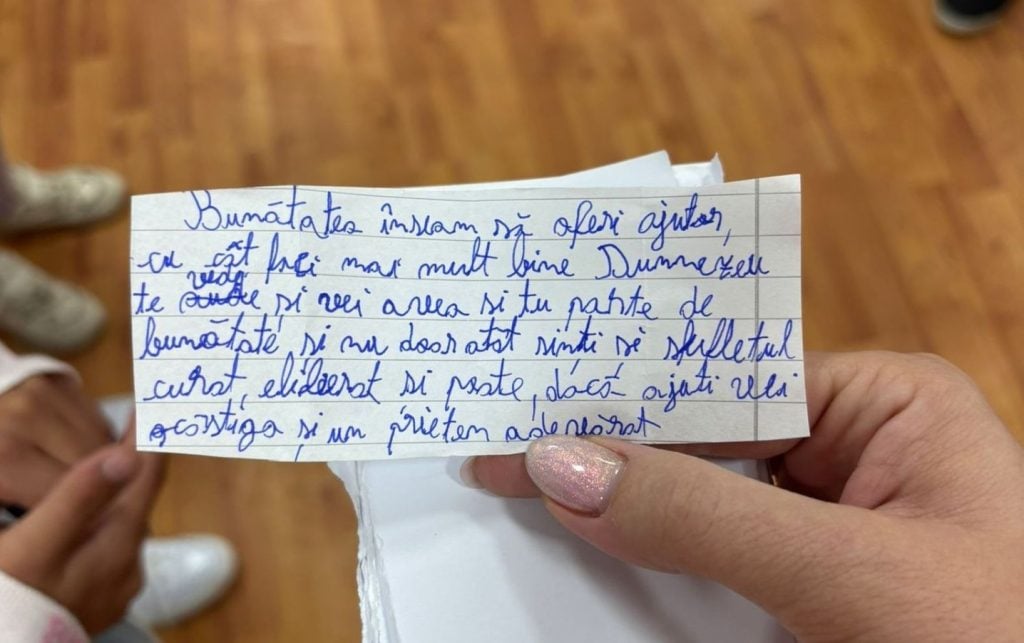 Bunătatea înseam să oferi ajutor,
cu cât faci mai mult bine Dumnezeu
te vede și vei avea si tu parte de
bunătate și nu doar atât sinți si sufletul
curat, eliberat si poate, dacă ajuti vei
castiga și un prieten adevărat